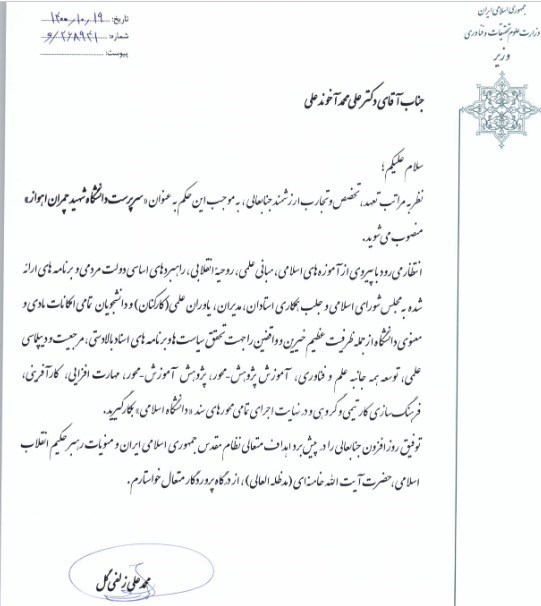 جمهوری اسلامی ایران
وزارت علوم تحقیقات و فناوری
وزیر
تاریخ: ۱۴۰۰-۱۰-۱۹
شماره:
پیوست:
جناب آقای دکتر علی محمد آخوند علی
سلام علیکم؛
نظر به مراتب تعهد، تخصص و تجارب ارزشمند جنابعالی، به موجب این حکم به عنوان «سرپرست دانشگاه شهید چمران اهواز»
منصوب می شوید.
انتظار می رود با پیروی از آموزه های اسلامی، مبانی علمی، روحیه انقلابی، راهبردهای اساسی دولت مردمی و برنامه های ارائه
شده به مجلس شورای اسلامی و جلب همکاری استادان، مدیران، یاوران علمی (کارکنان) و دانشجویان تمامی امکانات مادی و
معنوی دانشگاه از جمله ظرفیت عظیم خیرین و واقفین را جهت تحقق سیاست ها و برنامه های اسناد بالادستی، مرجعیت و دیپلماسی
علمی، توسعه همه جانبه علم و فناوری، آموزش پژوهش-محور، پژوهش آموزش-محور، مهارت افزایی، کارآفرینی،
فرهنگ سازی کار تیمی و گروهی و در نهایت اجرای تمامی محورهای سند «دانشگاه اسلامی» بکار گیرید.
توفیق روز افزون جنابعالی را در پیش برد اهداف متعالی نظام مقدس جمهوری اسلامی ایران و منویات رهبر حکیم انقلاب
اسلامی، حضرت آیت الله خامنه ای (مدظله العالی)، از درگاه پروردگار متعال خواستارم.
محمدعلی زلفی گل